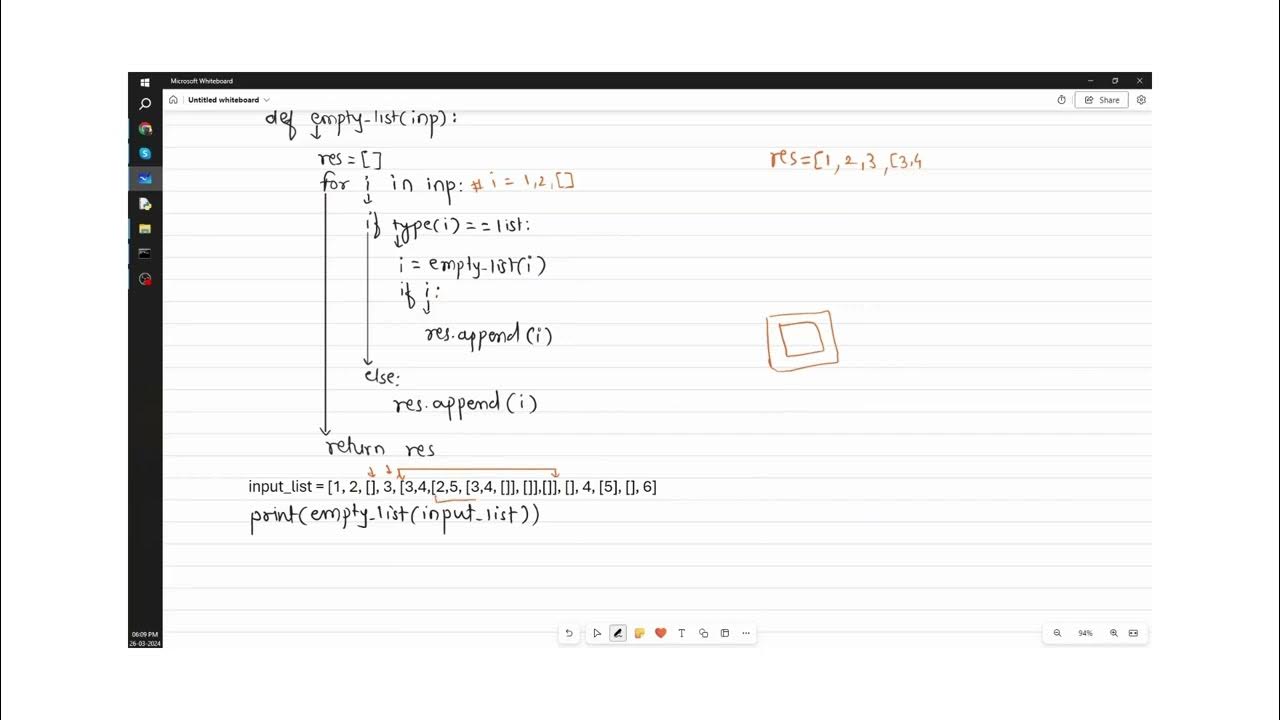 Microsoft Whiteboard
Untitled whiteboard
Share
def empty_list(inp):
res = []
for i in inp: # i = 1,2,[]
if type(i)==list:
i = empty_list(i)
if i:
res.append(i)
else:
res.append(i)
return res
res=[1,2,3,[3,4
input_list = [1, 2, [], 3, [3,4,[2,5, [3,4, []], []],[]], [], 4, [5], [], 6]
print(empty_list(input_list))
T
94%
06:09 PM
26-03-2024